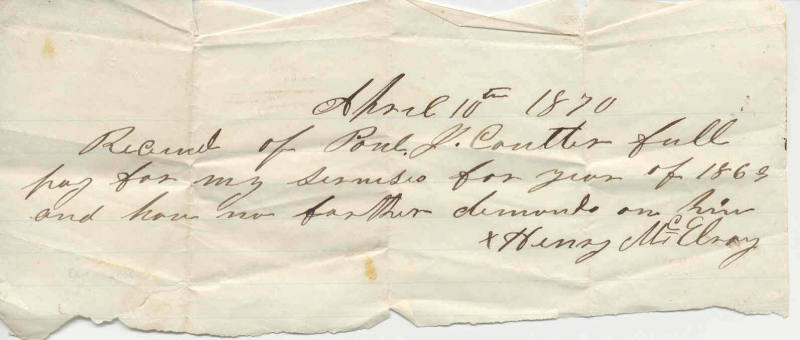 April 10th 1870
Recievd of Paul. J. Coutter full
pay for my servises for year of 1869
and have no farther demands on him
x Henry McElroy